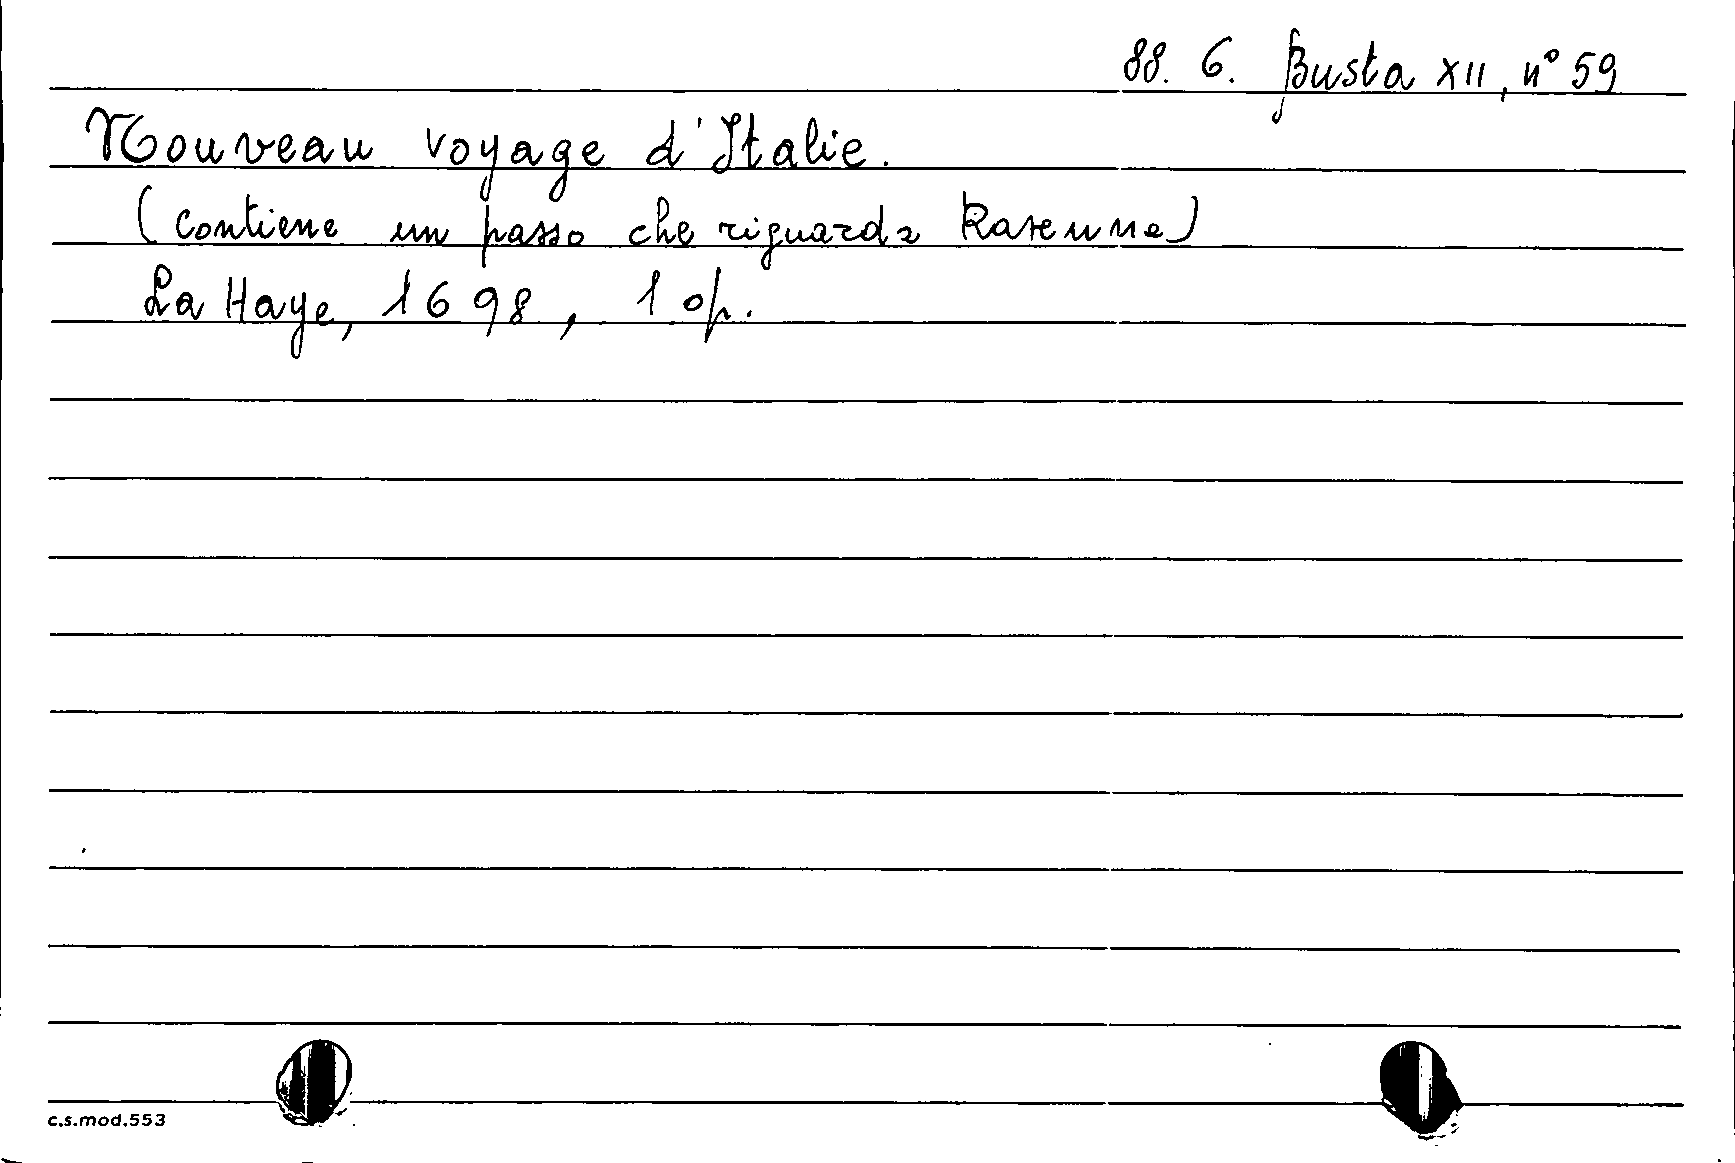 88. 6. Busta XII, n° 59
Nouveau voyage d'Italie.
(contiene un passo che riguarda Ravenna)
La Haye, 1698, 1 op.
c.s.mod.553